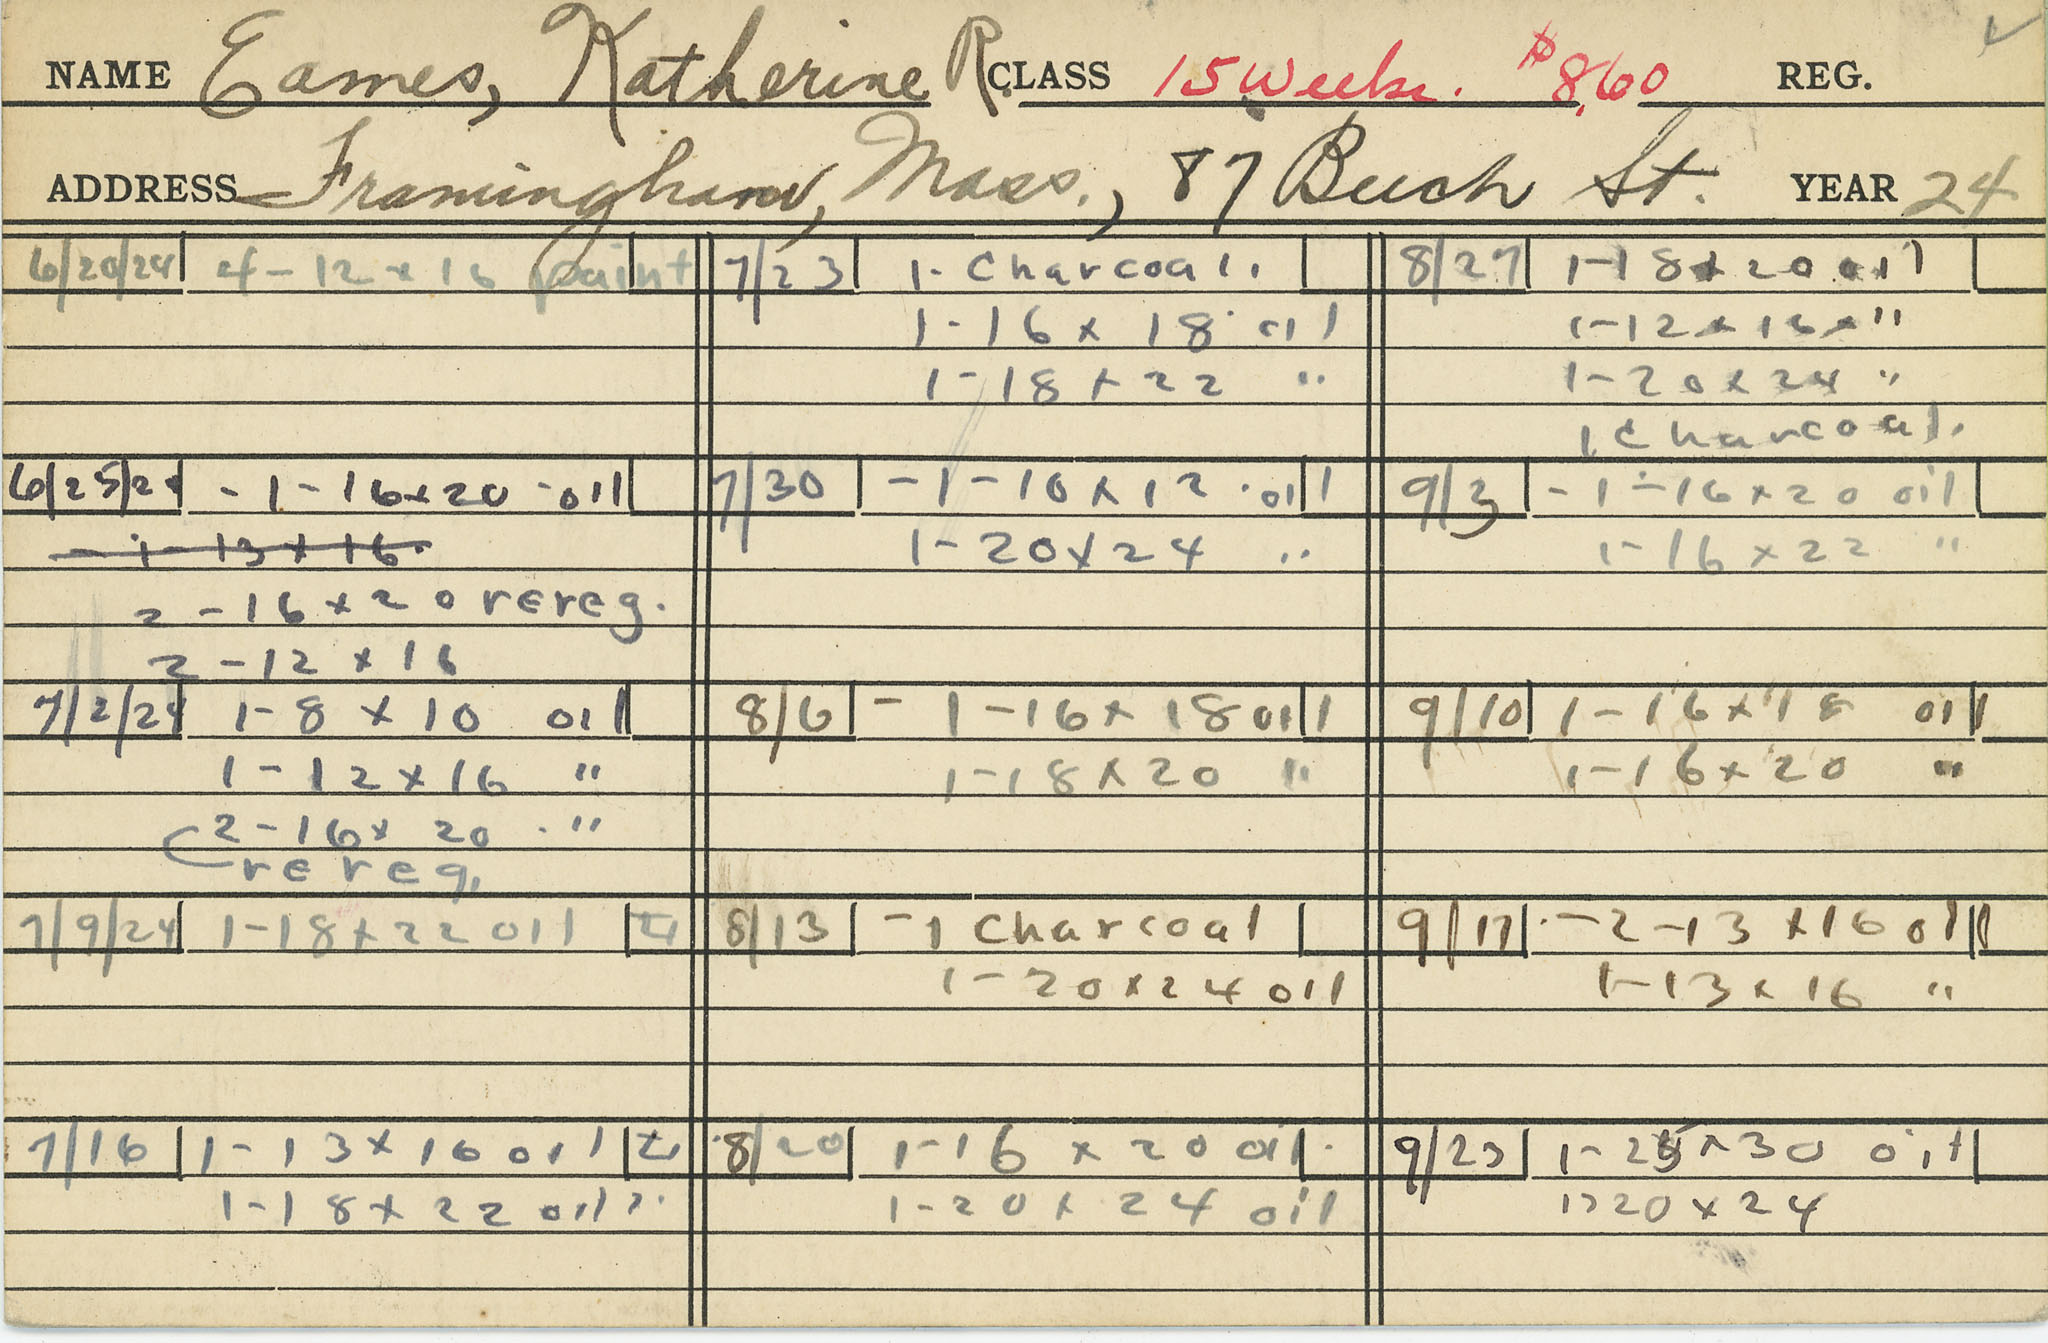 NAME Eames, Katherine R. CLASS 15 Weeks. $8.60 REG.
ADDRESS Framingham, Mass., 87 Beech St. YEAR 24
6/20/24 4-12x16 paint
6/25/24 -1-16x20 oil
-1-13x16.
2-16x20 rereg.
2-12x16
7/2/24 1-8x10 oil
1-12x16 "
2-16x20 "
rereg.
7/9/24 1-18x22 oil
7/16 1-13x16 oil
1-18x22 oil
7/23 1-Charcoal.
1-16x18 oil
1-18x22 "
7/30 -1-10x12 oil
1-20x24 "
8/6 - 1-16x18 oil
1-18x20 "
8/13 -1 Charcoal
1-20x24 oil
8/20 1-16x20 oil.
1-20x24 oil
8/27 1-18x20 oil
1-12x16 "
1-20x24 "
1 Charcoal.
9/3 -1-16x20 oil
1-16x22 "
9/10 1-16x18 oil
1-16x20 "
9/17 -2-13x16 oil
1-13x16 "
9/23 1-25x30 oil
1-20x24